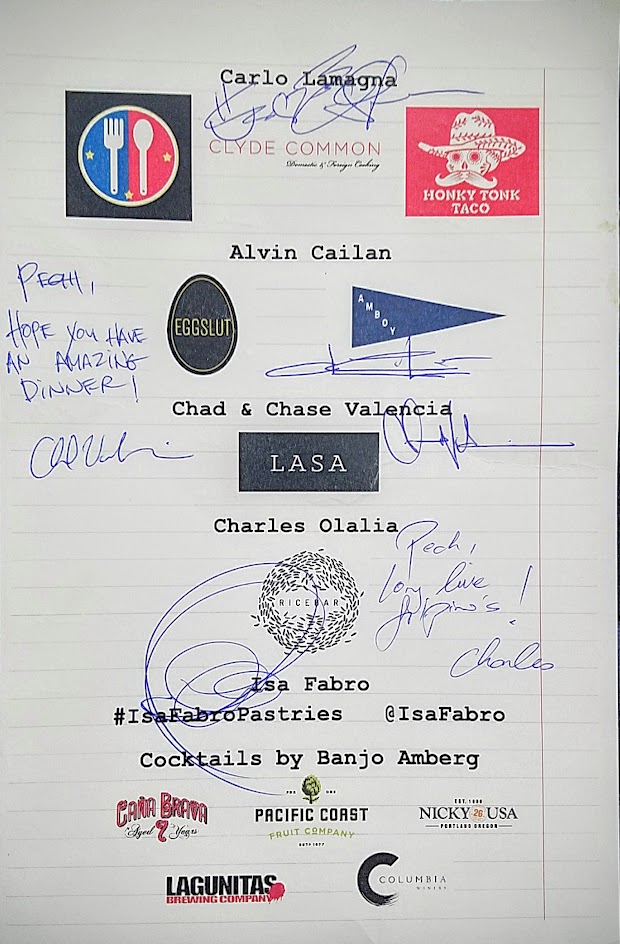 Carlo Lamagna
CLYDE COMMON
Domestic & Foreign Cooking
HONKY TONK
TACO
Alvin Cailan
PECHI,
HOPE YOU HAVE
AN AMAZING
DINNER!
EGGSLUT
AMBOY
Chad & Chase Valencia
LASA
Charles Olalia
RICEBAR
Pechi,
Long live
filipino's!
Charles
Isa Fabro
#IsaFabroPastries @IsaFabro
Cocktails by Banjo Amberg
CAÑA BRAVA
Aged 7 Years
PACIFIC COAST
FRUIT COMPANY
EST. 1998
NICKY USA
PORTLAND OREGON
LAGUNITAS
BREWING COMPANY
COLUMBIA
WINERY